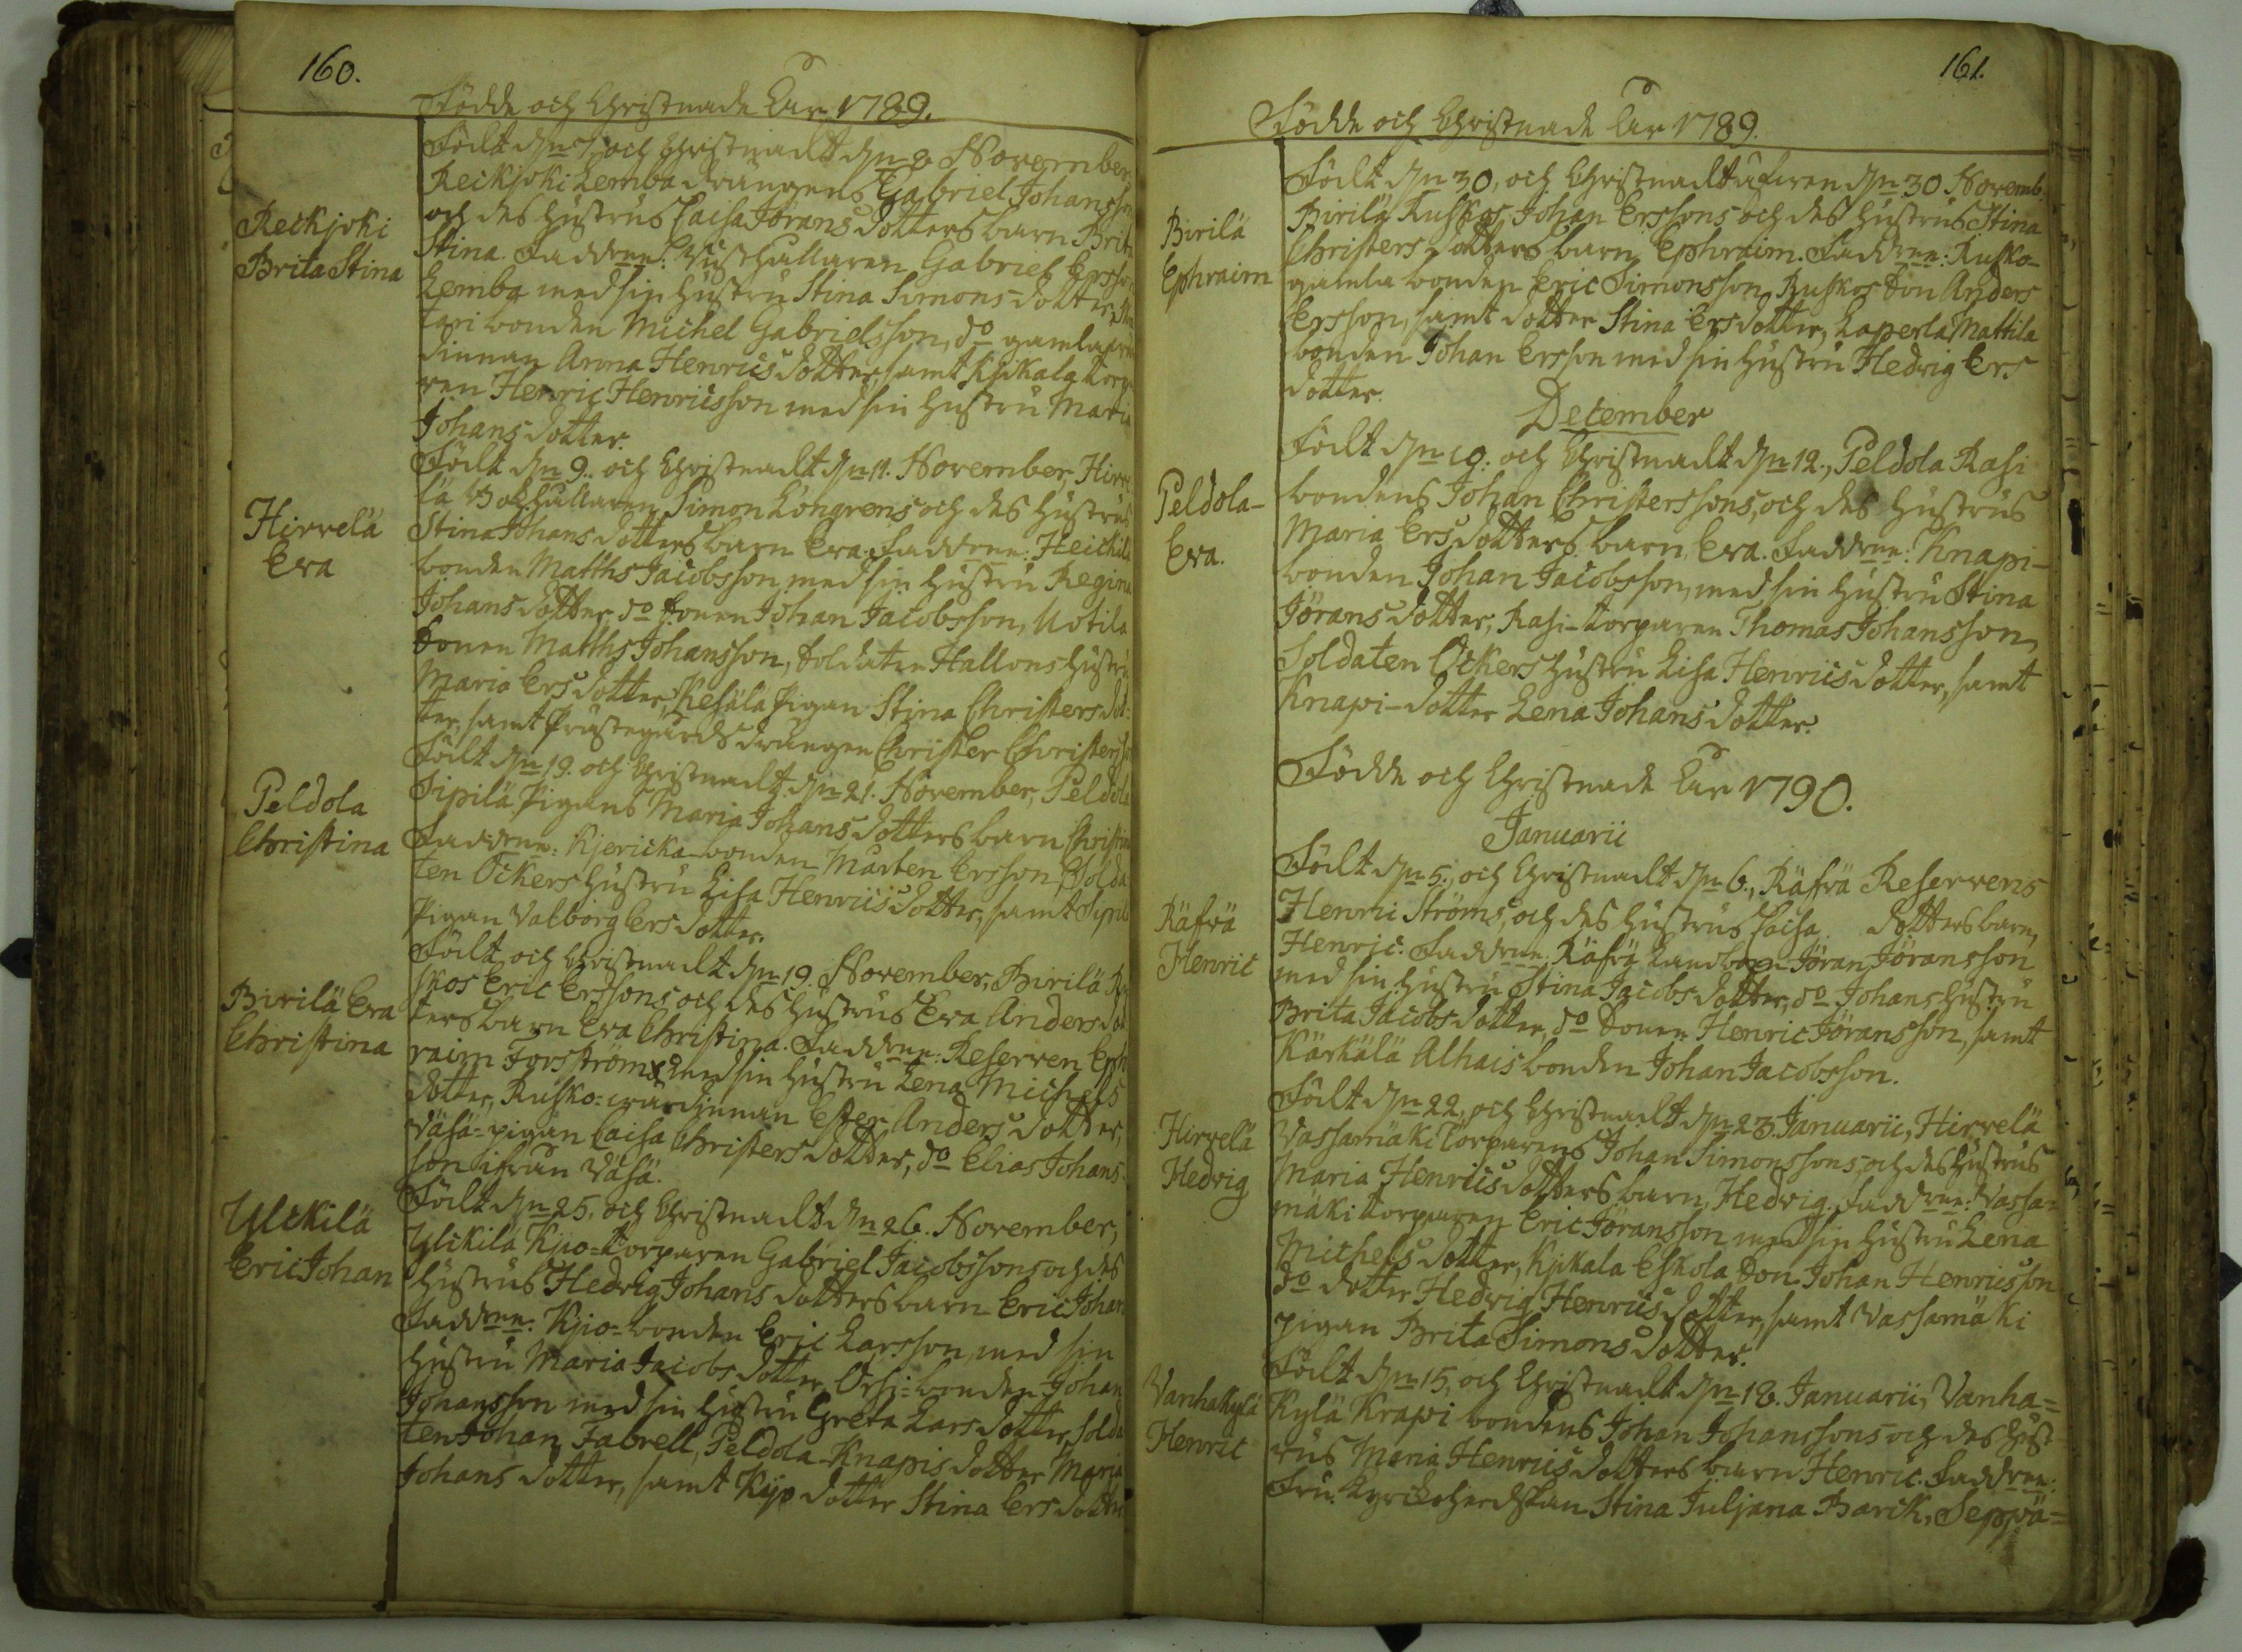 160.
Födde och Christnade Åhr 1789.
Födt d/n 7, och Christnadt d/n 8. November,
Reckjoki Lemba drängens Gabriel Johansson
och des Hustrus Caisa Jörans dotters barn Brita
Stina. Faddrne: Gabriel Ersson
Lemba med sin Hustru Stina Simons dotter,
bonden Michel Gabrielsson, do gamla
dinnan Anna Henrics dotter, samt Kjikala torpa
ren Henric Henricsson med sin Hustru Maria
Johans dotter.
Reckjoki
Brita Stina
Födt d/n 9. och Christnadt d/n 11. November, Hirve
lä Bokhållaren Simon Löngrens och des Hustrus
Stina Johans dotters barn Eva. Faddrne: Heickilä
bonden Matths Jacobsson med sin Hustru Regina
Johans dotter, do sonen Johan Jacobsson, Uotila
sonen Matths Johansson, Soldaten Hallons Hustru
Maria Ers dotter, Kesälä Pigan Stina Christers dot-
ter, samt Prästegårds drängen Christer Christersson
Hirvelä
Eva
Födt d/n 19. och Christnadt d/n 21. November, Peldola
Sipilä Pigans Maria Johans dotters barn Christina
Faddrne: Kjericka-bonden Mårten Ersson, Solda
ten Ockers Hustru Lisa Henrics dotter, samt Sipilä
Pigan Valborg Ers dotter.
Peldola
Christina
Födt och Christnadt d/n 19. November, Birilä Ru
skos Eric Erssons och des Hustrus Eva Anders dot
ters barn Eva Christina. Faddrne: Reserven Eph
raim Forsström med sin Hustru Lena Michels
dotter, Rusko-wärdinnan Ester Anders dotter,
Väsä-pigan Caisa Christers dotter, do Elias Johans-
son ifrån Väsä.
Birilä Eva
Christina
Födt d/n 25, och Christnadt d/n 26. November,
Ylikilä Kjio-torparen Gabriel Jacobssons och des
Hustrus Hedvig Johans dotters barn Eric Johan
Faddrne: Kjio-bonden Eric Larsson, med sin
Hustru Maria Jacobs dotter, Orsi-bonden Johan
Johansson med sin Hustru Greta Lars dotter, Solda
ten Johan Fabrell, Peldola-Knapis dotter Maria
Johans dotter, samt Kijo dotter Stina Ers dotter
Ylikilä
Eric Johan
161.
Födde och Christnade Åhr 1789.
Födt d/n 30, och Christnadt d/n 30 Novemb.
Birilä Ruskos Johan Erssons och des Hustrus Stina
Christers dotters barn Ephraim. Faddrne: Rusko-
gamla bonden Eric Simonsson, Ruskos Son Anders
Ersson, samt dotter Stina Ers dotter, Laperla Mattila
bonden Johan Ersson med sin Hustru Hedvig Ers
dotter.
Birilä
Ephraim
December
Födt d/n 10. och Christnadt d/n 12., Peldola Rasi
bondens Johan Christerssons, och des Hustrus
Maria Ers dotters barn, Eva. Faddrne: Knapi-
bonden Johan Jacobsson, med sin Hustru Stina
Jörans dotter, Rasi-torparen Thomas Johansson,
Soldaten Ockers Hustru Lisa Henrics dotter, samt
Knapi-dotter Lena Johans dotter.
Peldola-
Eva.
Födde och Christnade Åhr 1790.
Januarii
Födt d/n 5., och Christnadt d/n 6., Räfvä Reservens
Henric Ströms, och des Hustrus Caisa dotters barn,
Henric. Faddrne: Räfvä Landbonden Jöran Jöransson
med sin Hustru Stina Jacobs dotter, do Johans Hustru
Brita Jacobs dotter, do Sonen Henric Jöransson, samt
Kärkälä Alhais bonden Johan Jacobsson.
Räfvä
Henric
Födt d/n 22, och Christnadt d/n 23. Januarii, Hirvelä
Vassamäki Torparens Johan Simonssons, och des Hustrus
Maria Henrics dotters barn, Hedvig. Faddrne: Vassa-
mäki torparen Eric Jöransson med sin Hustru Lena
Michels dotter, Kjikala Eskola Son Johan Henricsson
do dotter Hedvig Henrics dotter, samt Vassamäki
pigan Brita Simons dotter.
Hirvelä
Hedvig
Födt d/n 15, och Christnadt d/n 18. Januarii, Vanha-
Kylä Krapi bondens Johan Johanssons och des Hust
rus Maria Henrics dotters barn Henric. Faddrne:
Fru Kyrckoherdskan Stina Juljana Barck, Seppä-
Vanhakylä
Henric